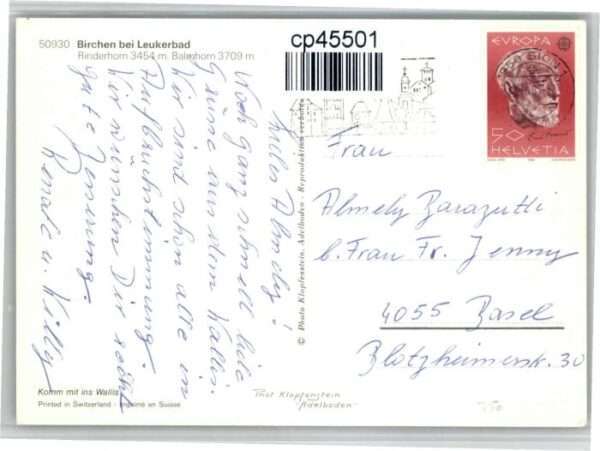 50930 Birchen bei Leukerbad
Rinderhorn 3454 m. Balmhorn 3709 m
cp45501
EUROPA
50
HELVETIA
Liebes Almely!
Noch ganz schnell liebe
Grüsse aus dem Wallis.
Wir sind schon alle in
Aufbruchstimmung.
Wir wünschen Dir recht
gute Besserung.
© Photo Klopfenstein, Adelboden - Reproduktion verboten
Frau
Almely Barazutti
b. Frau Fr. Jenny
4055 Basel
Blotzheimerstr. 30
Komm mit ins Wallis
Printed in Switzerland - Imprimé en Suisse
Phot Klopfenstein
Adelboden